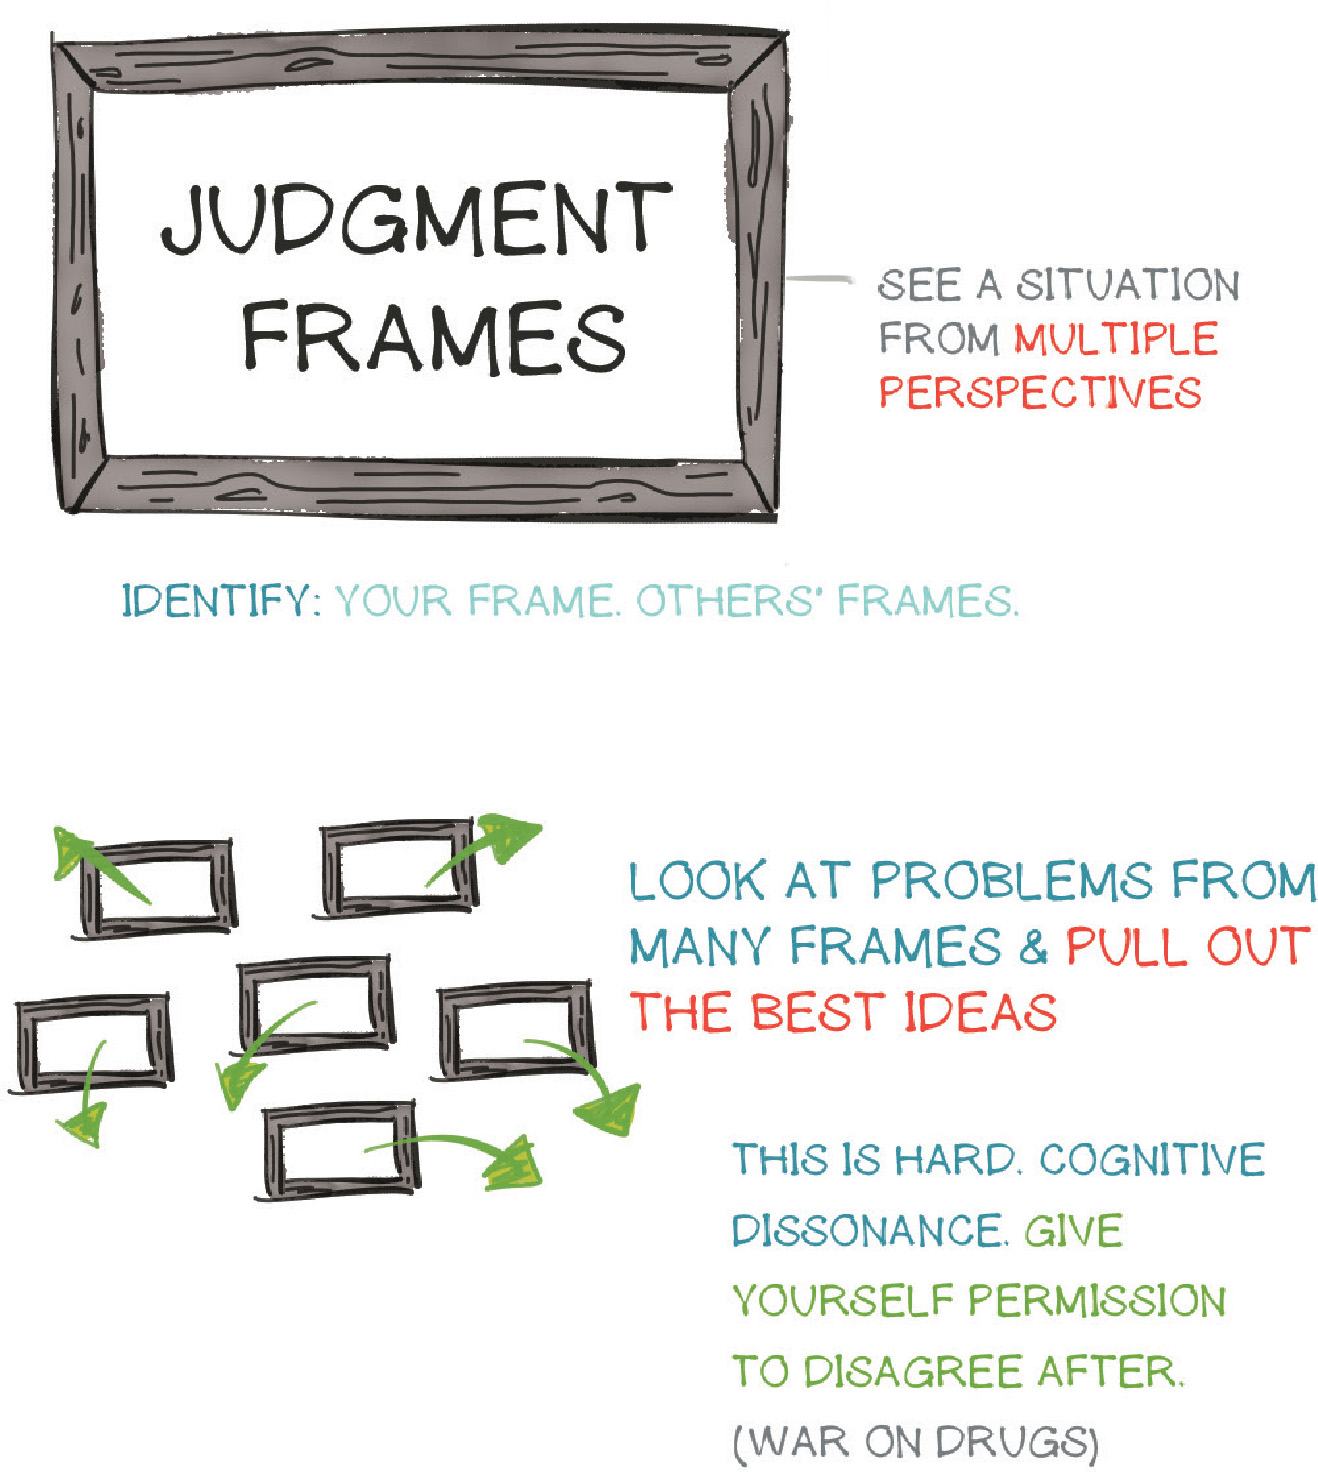 JUDGMENT
FRAMES
SEE A SITUATION
FROM MULTIPLE
PERSPECTIVES
IDENTIFY: YOUR FRAME. OTHERS' FRAMES.
LOOK AT PROBLEMS FROM
MANY FRAMES & PULL OUT
THE BEST IDEAS
THIS IS HARD. COGNITIVE
DISSONANCE. GIVE
YOURSELF PERMISSION
TO DISAGREE AFTER.
(WAR ON DRUGS)